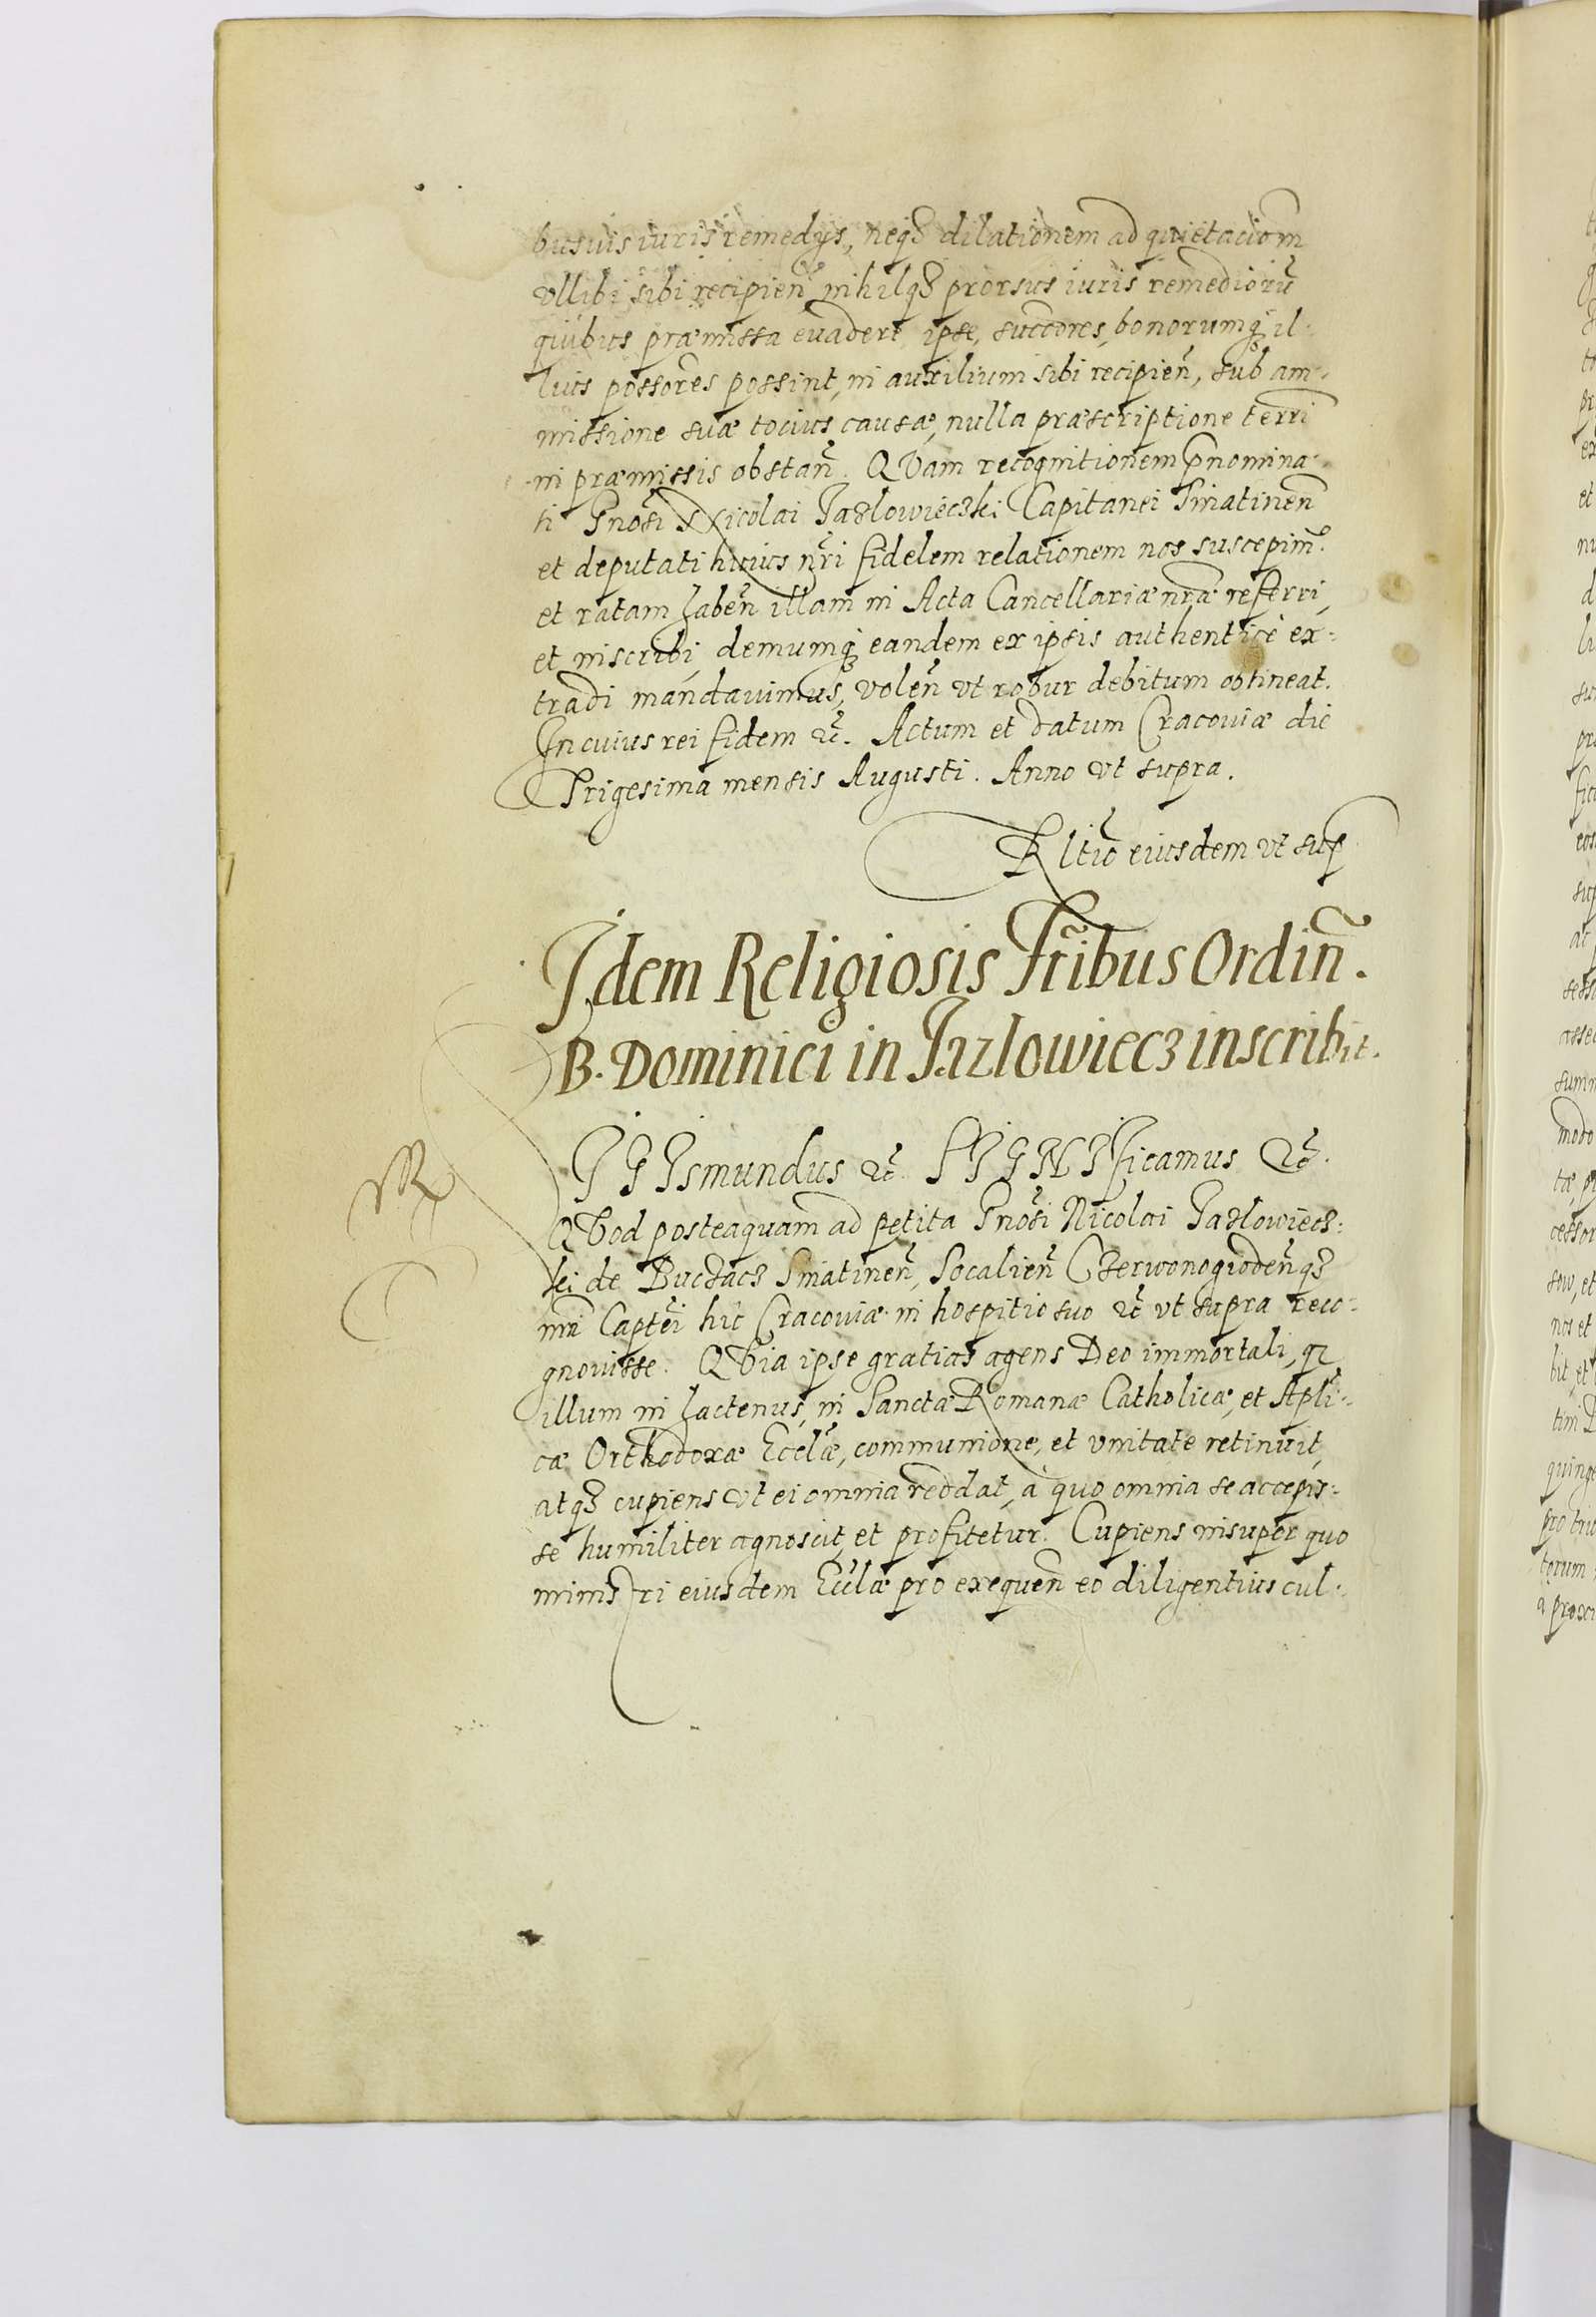 busuis iuris remedys, neqȝ dilationem ad quietaciom̃
vllibi sibi recipieñ nihilqȝ prorsus iuris remediorũ
quibus præmissa euadere ipse, succores, bonorumqȝ il-
lius possores possint, in auxilium sibi recipieñ, sub am-
missione suæ tocius causæ, nulla præscriptione terrĩ
in præmissis obstañ. QVam recognitionem p̃nomina-
ti Gnosi Nicolai Jazlowieczki Capitanei Sniatineñ
et deputati huius nr̃i fidelem relationem nos suscepim9.
et ratam habeñ illam in Acta Cancellariæ nr̃æ referri,
et inscribi, demumqȝ eandem ex ipsis authenticè ex-
tradi mandauimus, voleñ vt robur debitum obtineat.
In cuius rei fidem &c̃. Actum et datum Cracouiæ die
Trigesima mensis Augusti. Anno vt supra.
Rltio eiusdem vt sup
Idem Religiosis Fr̃ibus Ordiñ.
B. Dominici in Jazlowiecz inscribit.
SIGIsmundus &c̃. SIGNIficamus &c̃.
QVod posteaquam ad petita Gnosi Nicolai Jazlowiecz-
ki de Buczacz Sniatineñ, Socalieñ Czerwonogrodeñqȝ
nr̃i Captei hic Cracouiæ in hospitio suo &c̃ vt supra reco-
gnouisse. QVia ipse gratias agens Deo immortali, qȝ
illum in hactenus, in Sanctæ Romanæ Catholicæ, et Apli-
cæ Orthodoxæ Ecclæ, communione, et vnitate retinuit,
atqȝ cupiens vt ei omnia reddat, à quo omnia se accepis-
se humiliter agnoscit, et profitetur. Cupiens insuper quo
ministri eiusdem Ecclæ pro exequeñ eo diligentius cul-